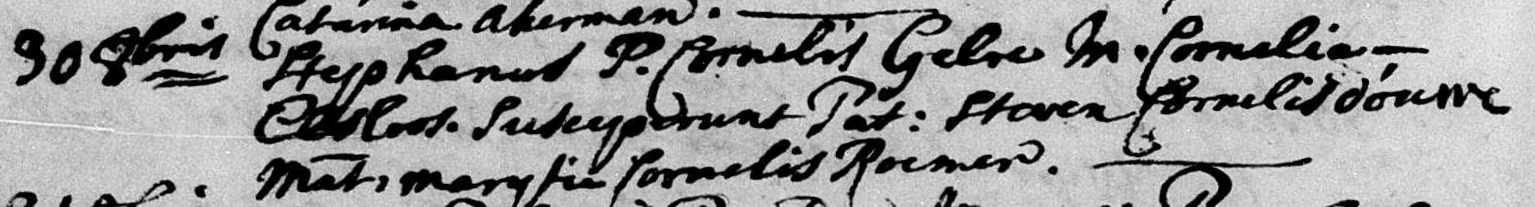 Catarina Akerman.
30 8bris Stephanus P. Cornelis Gelre M. Cornelia
Susceperunt Pat: Steven Cornelis douwe
Mat: marytie Cornelis Roemer.